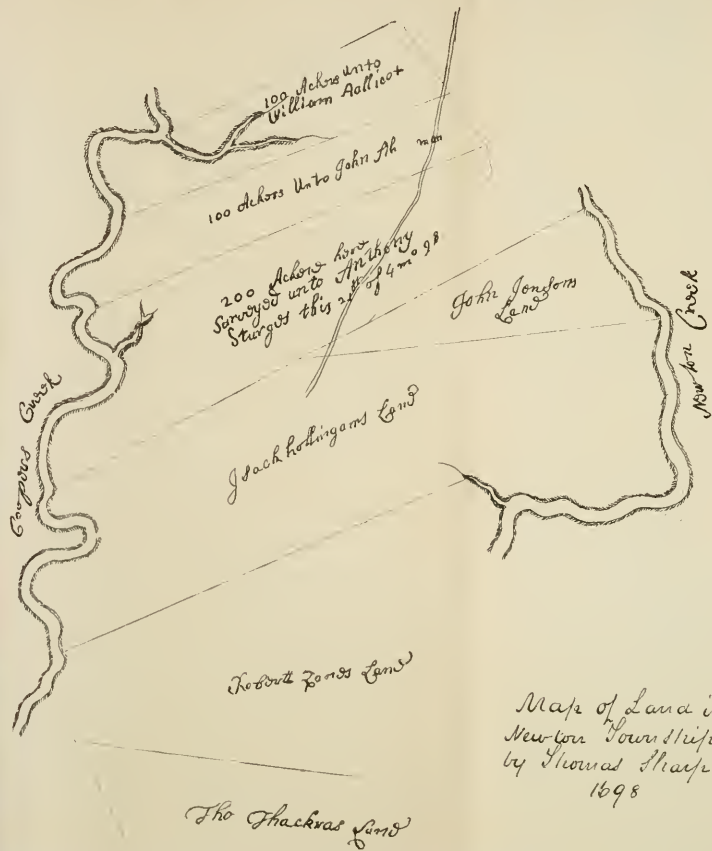 100 Ackers unto
William Aallicot
100 Ackers Unto John Sh man
200 Ackers here
Surveyed unto Anthony
Sturges this 21 of 4 mo 98
John Jonsons
Land
Newton Creek
Coopers Creek
Jsack hollingams Land
Robertt Zones Land
Tho Thackras Land
Map of Land i
Newton Township
by Thomas Sharp
1698